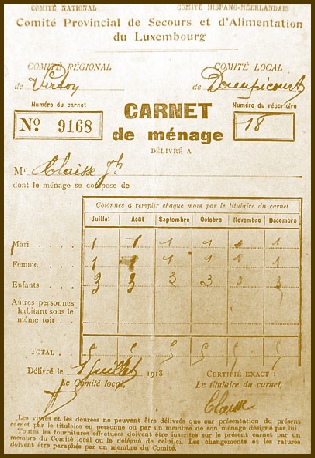 COMITÉ NATIONAL COMITÉ HISPANO-NÉERLANDAIS
Comité Provincial de Secours et d'Alimentation
du Luxembourg
COMITÉ RÉGIONAL COMITÉ LOCAL
de Virton de Dampicourt
Numéro du carnet Numéro du répertoire
No 9168 CARNET 18
de ménage
DÉLIVRÉ A
Mr Claisse Jh
dont le ménage se compose de
Colonnes à remplir chaque mois par le titulaire du carnet
Juillet Août Septembre Octobre Novembre Décembre
Mari 1 1 1 1 1 1
Femme 1 1 1 1 1
Enfants 3 3 3 3 3 3
Autres personnes
habitant sous le
même toit
TOTAL 5 5 5 5 5 5
Délivré le 1 juillet 1918 CERTIFIÉ EXACT
Le Comité local, Le titulaire du carnet,
Claisse
Les vivres et les denrées ne peuvent être délivrés que sur présentation du présent
carnet par le titulaire en personne ou par un membre de son ménage désigné par lui.
Toutes les fournitures effectuées doivent être inscrites sur le présent carnet par un
membre du Comité local en la colonne de celui-ci. Les changements et les ratures
doivent être paraphés par un membre du Comité.